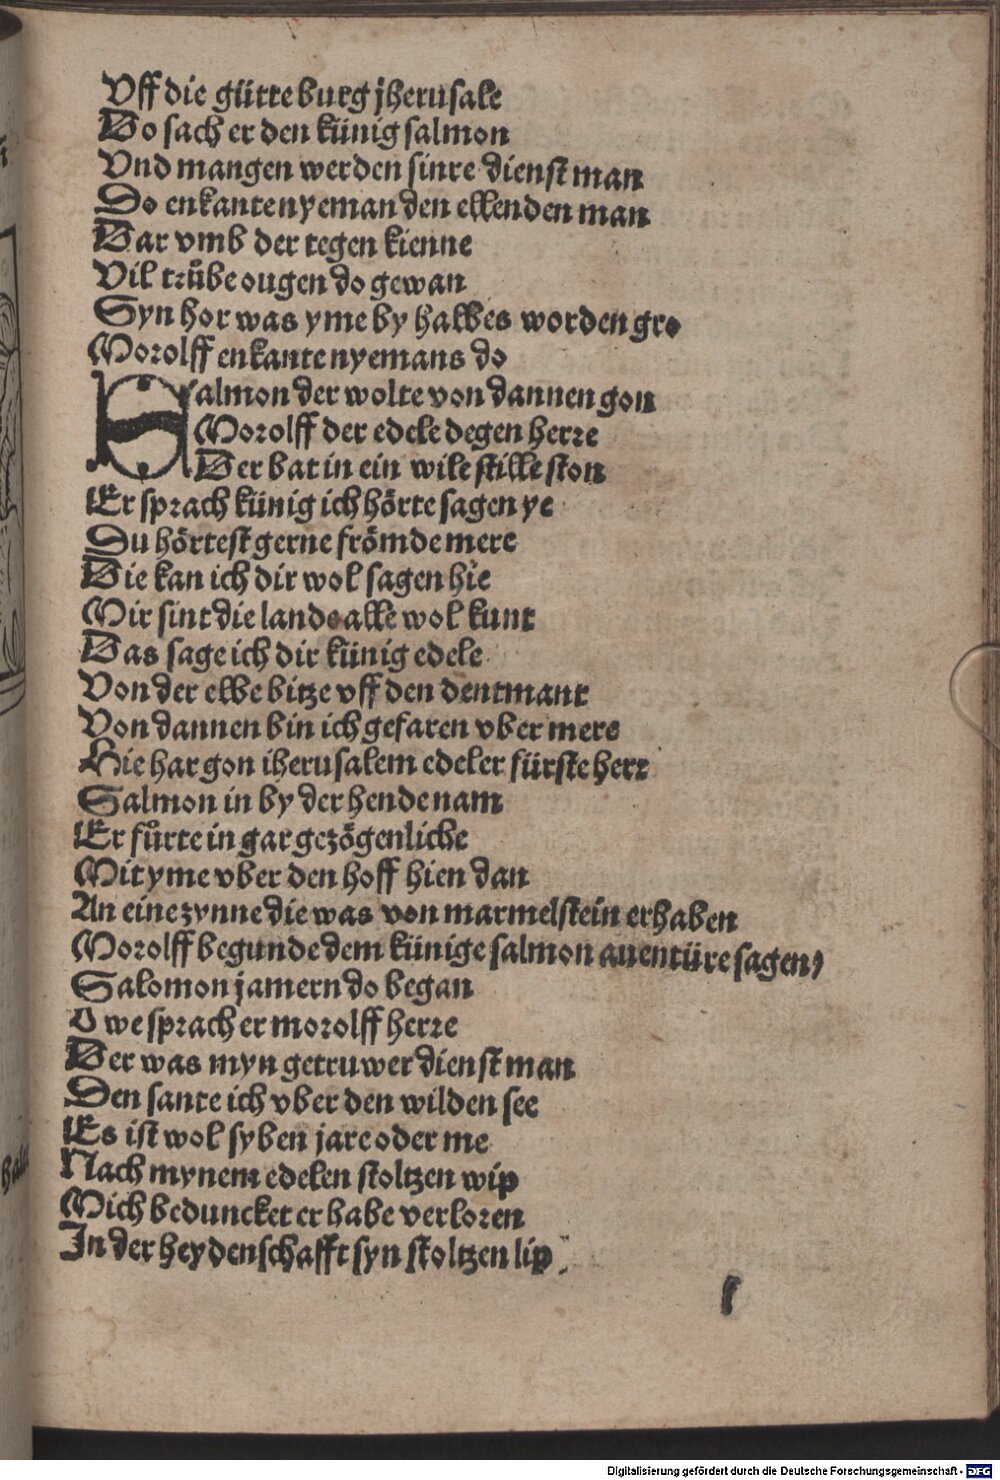 Vff die gütte burg jherusale
Do sach er den künig salmon
Vnd mangen werden sinre dienst man
Do enkante nyeman den ellenden man
Dar vmb der tegen kienne
Vil trůbe ougen do gewan
Syn hor was yme by halbes worden gro
Morolff enkante nyemans do
Salmon der wolte von dannen gon
Morolff der edele degen herre
Der bat in ein wile stille ston
Er sprach künig ich hörte sagen ye
Du hörtest gerne frömde mere
Die kan ich dir wol sagen hie
Mir sint die lande alle wol kunt
Das sage ich dir künig edele
Von der elbe bitze vff den dentmant
Von dannen bin ich gefaren vber mere
Hie har gon iherusalem edeler fürste herr
Salmon in by der hende nam
Er fůrte in gar gezögenliche
Mit yme vber den hoff hien dan
An eine zynne die was von marmelstein erhaben
Morolff begunde dem künige salmon auentüre sagen)
Salomon jamern do began
O we sprach er morolff herre
Der was myn getruwer dienst man
Den sante ich vber den wilden see
Es ist wol syben jare oder me
Nach mynem edelen stoltzen wip
Mich beduncket er habe verloren
In der heydenschafft syn stoltzen lip.
Digitalisierung gefördert durch die Deutsche Forschungsgemeinschaft - DFG